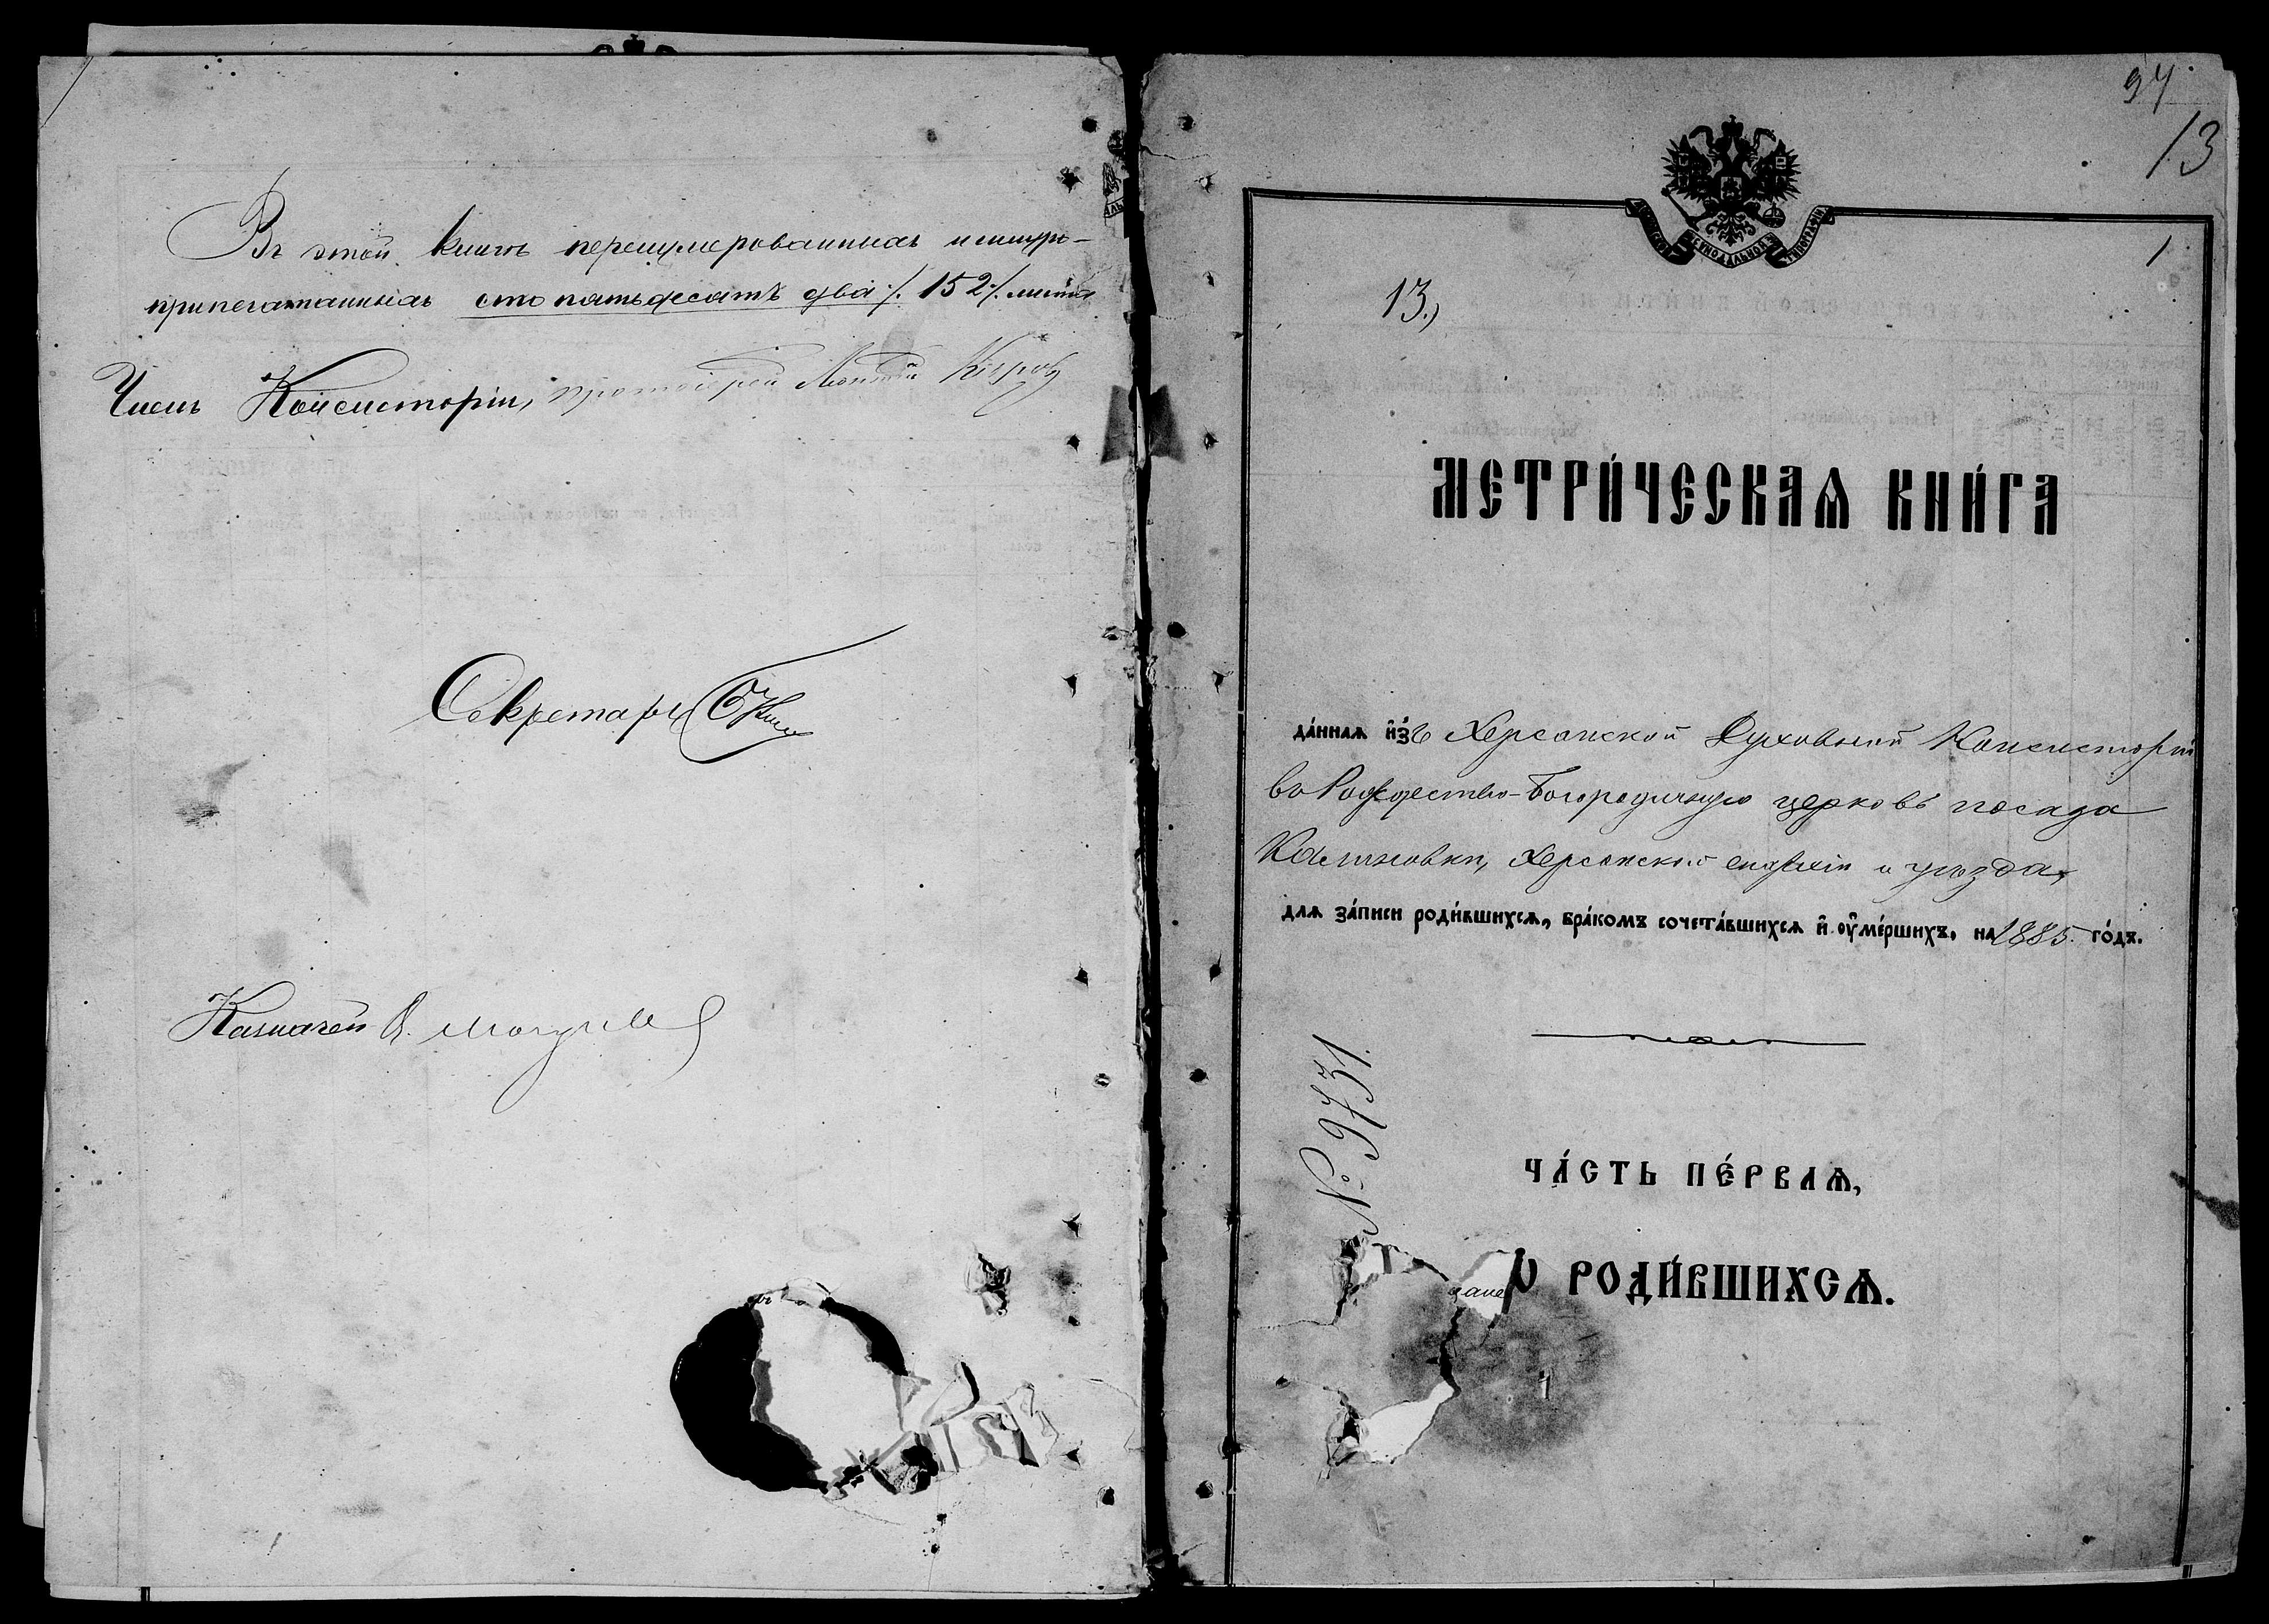 Въ этой книгѣ перенумерованныхъ и шнуро-
припечатанныхъ сто пятьдесятъ два /. 152 /. листа
Членъ Консисторіи, протоіерей
Секретарь
Казначей
94
13
1
13.)
МЕТРИ́ЧЕСКАѦ КНИ́ГА
да́ннаѧ и҆зъ Херсонской Духовной Консисторіи
въ Рождество-Богородичную церковь посада
Калиновки, Херсонской епархіи и уѣзда,
длѧ за́писи роди́вшихсѧ, бра́комъ сочета́вшихсѧ и҆ оу҆ме́ршихъ. на 1885 го́дъ.
№ 9731.
ЧА́СТЬ ПЕ́РВАѦ,
Ѡ РОДИ́ВШИХСѦ.